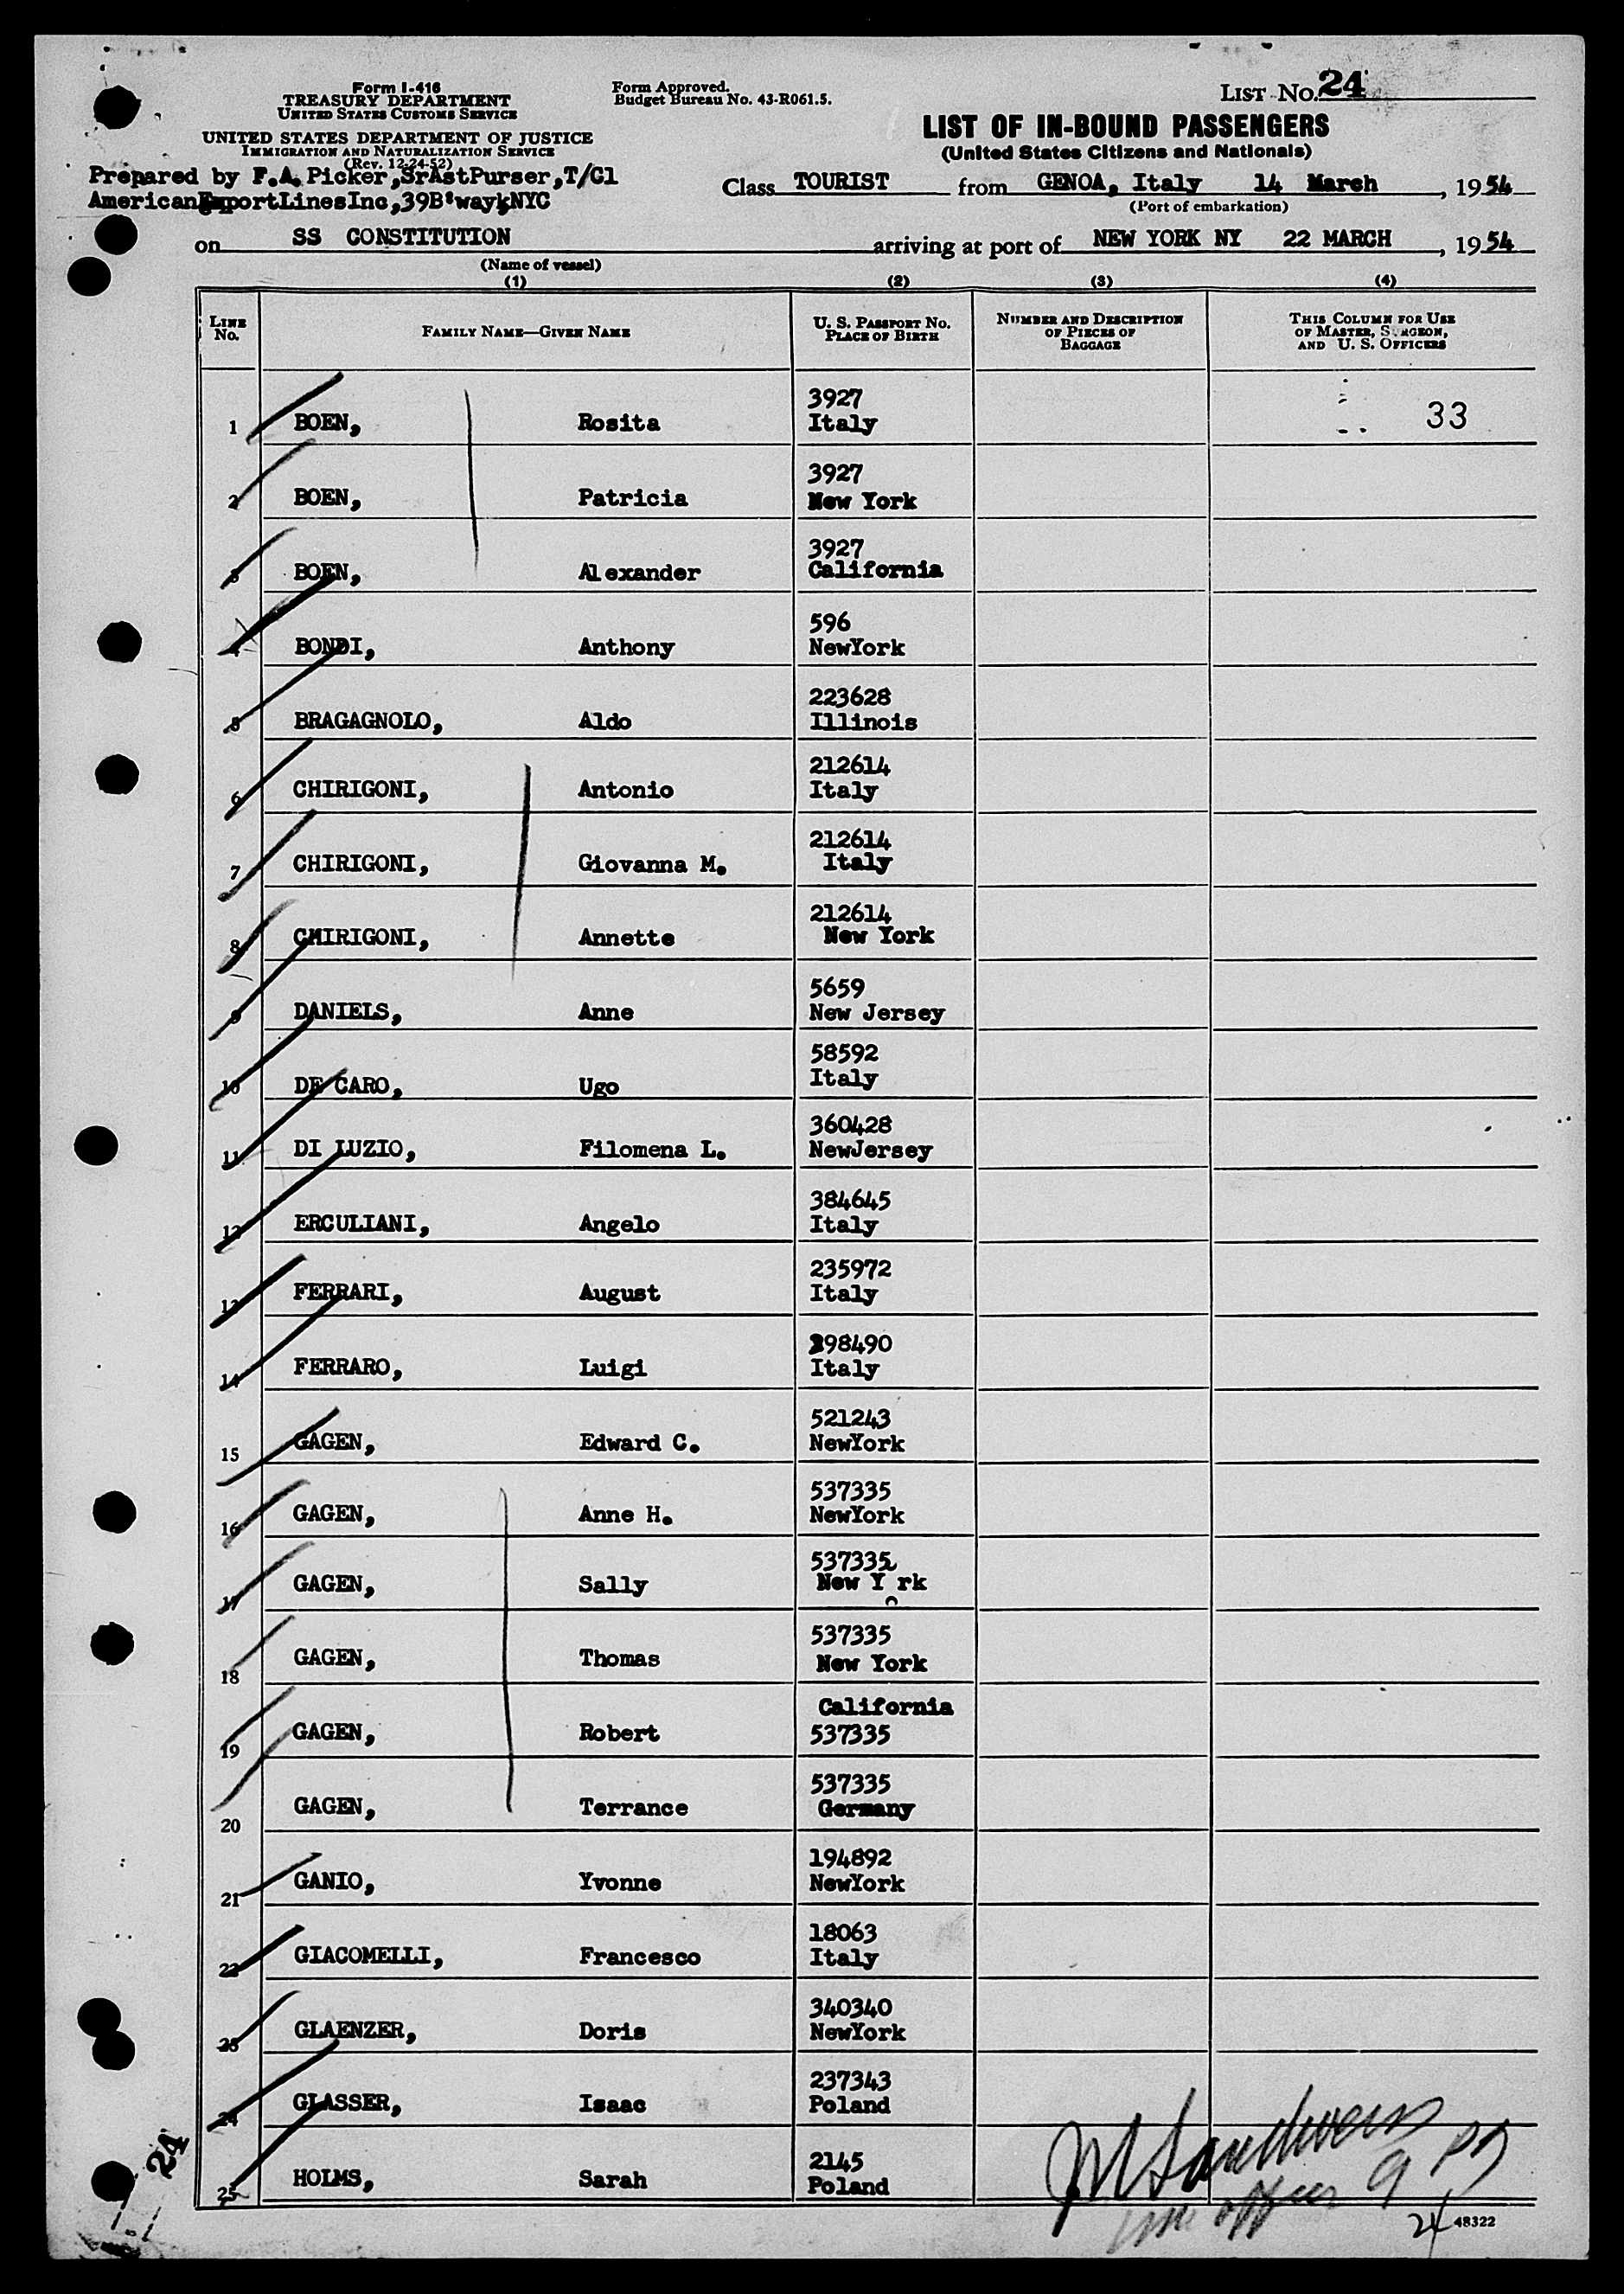 Form I-416
TREASURY DEPARTMENT
UNITED STATES CUSTOMS SERVICE
UNITED STATES DEPARTMENT OF JUSTICE
IMMIGRATION AND NATURALIZATION SERVICE
(Rev. 12-24-52)
Form Approved.
Budget Bureau No. 43-R061.5.
LIST NO. 24
LIST OF IN-BOUND PASSENGERS
(United States Citizens and Nationals)
Prepared by F.A. Picker,SrAstPurser,T/Cl
AmericanExportLinesInc,39B'way,NYC
Class TOURIST from GENOA, Italy 14 March, 1954
(Port of embarkation)
on SS CONSTITUTION arriving at port of NEW YORK NY 22 MARCH, 1954
(Name of vessel)
(1) (2) (3) (4)
LINE NO.
FAMILY NAME—GIVEN NAME
U. S. PASSPORT NO.
PLACE OF BIRTH
NUMBER AND DESCRIPTION
OF PIECES OF
BAGGAGE
THIS COLUMN FOR USE
OF MASTER, SURGEON,
AND U. S. OFFICERS
3927
1 BOEN, Rosita Italy 33
3927
2 BOEN, Patricia New York
3927
3 BOEN, Alexander California
596
4 BONDI, Anthony NewYork
223628
5 BRAGAGNOLO, Aldo Illinois
212614
6 CHIRIGONI, Antonio Italy
212614
7 CHIRIGONI, Giovanna M. Italy
212614
8 CHIRIGONI, Annette New York
5659
9 DANIELS, Anne New Jersey
58592
10 DE CARO, Ugo Italy
360428
11 DI LUZIO, Filomena L. NewJersey
384645
12 ERCULIANI, Angelo Italy
235972
13 FERRARI, August Italy
398490
14 FERRARO, Luigi Italy
521243
15 GAGEN, Edward C. NewYork
537335
16 GAGEN, Anne H. NewYork
537335
17 GAGEN, Sally New York
537335
18 GAGEN, Thomas New York
California
19 GAGEN, Robert 537335
537335
20 GAGEN, Terrance Germany
194892
21 GANIO, Yvonne NewYork
18063
22 GIACOMELLI, Francesco Italy
340340
23 GLAENZER, Doris NewYork
237343
24 GLASSER, Isaac Poland
2145
25 HOLMS, Sarah Poland
24
24
48322